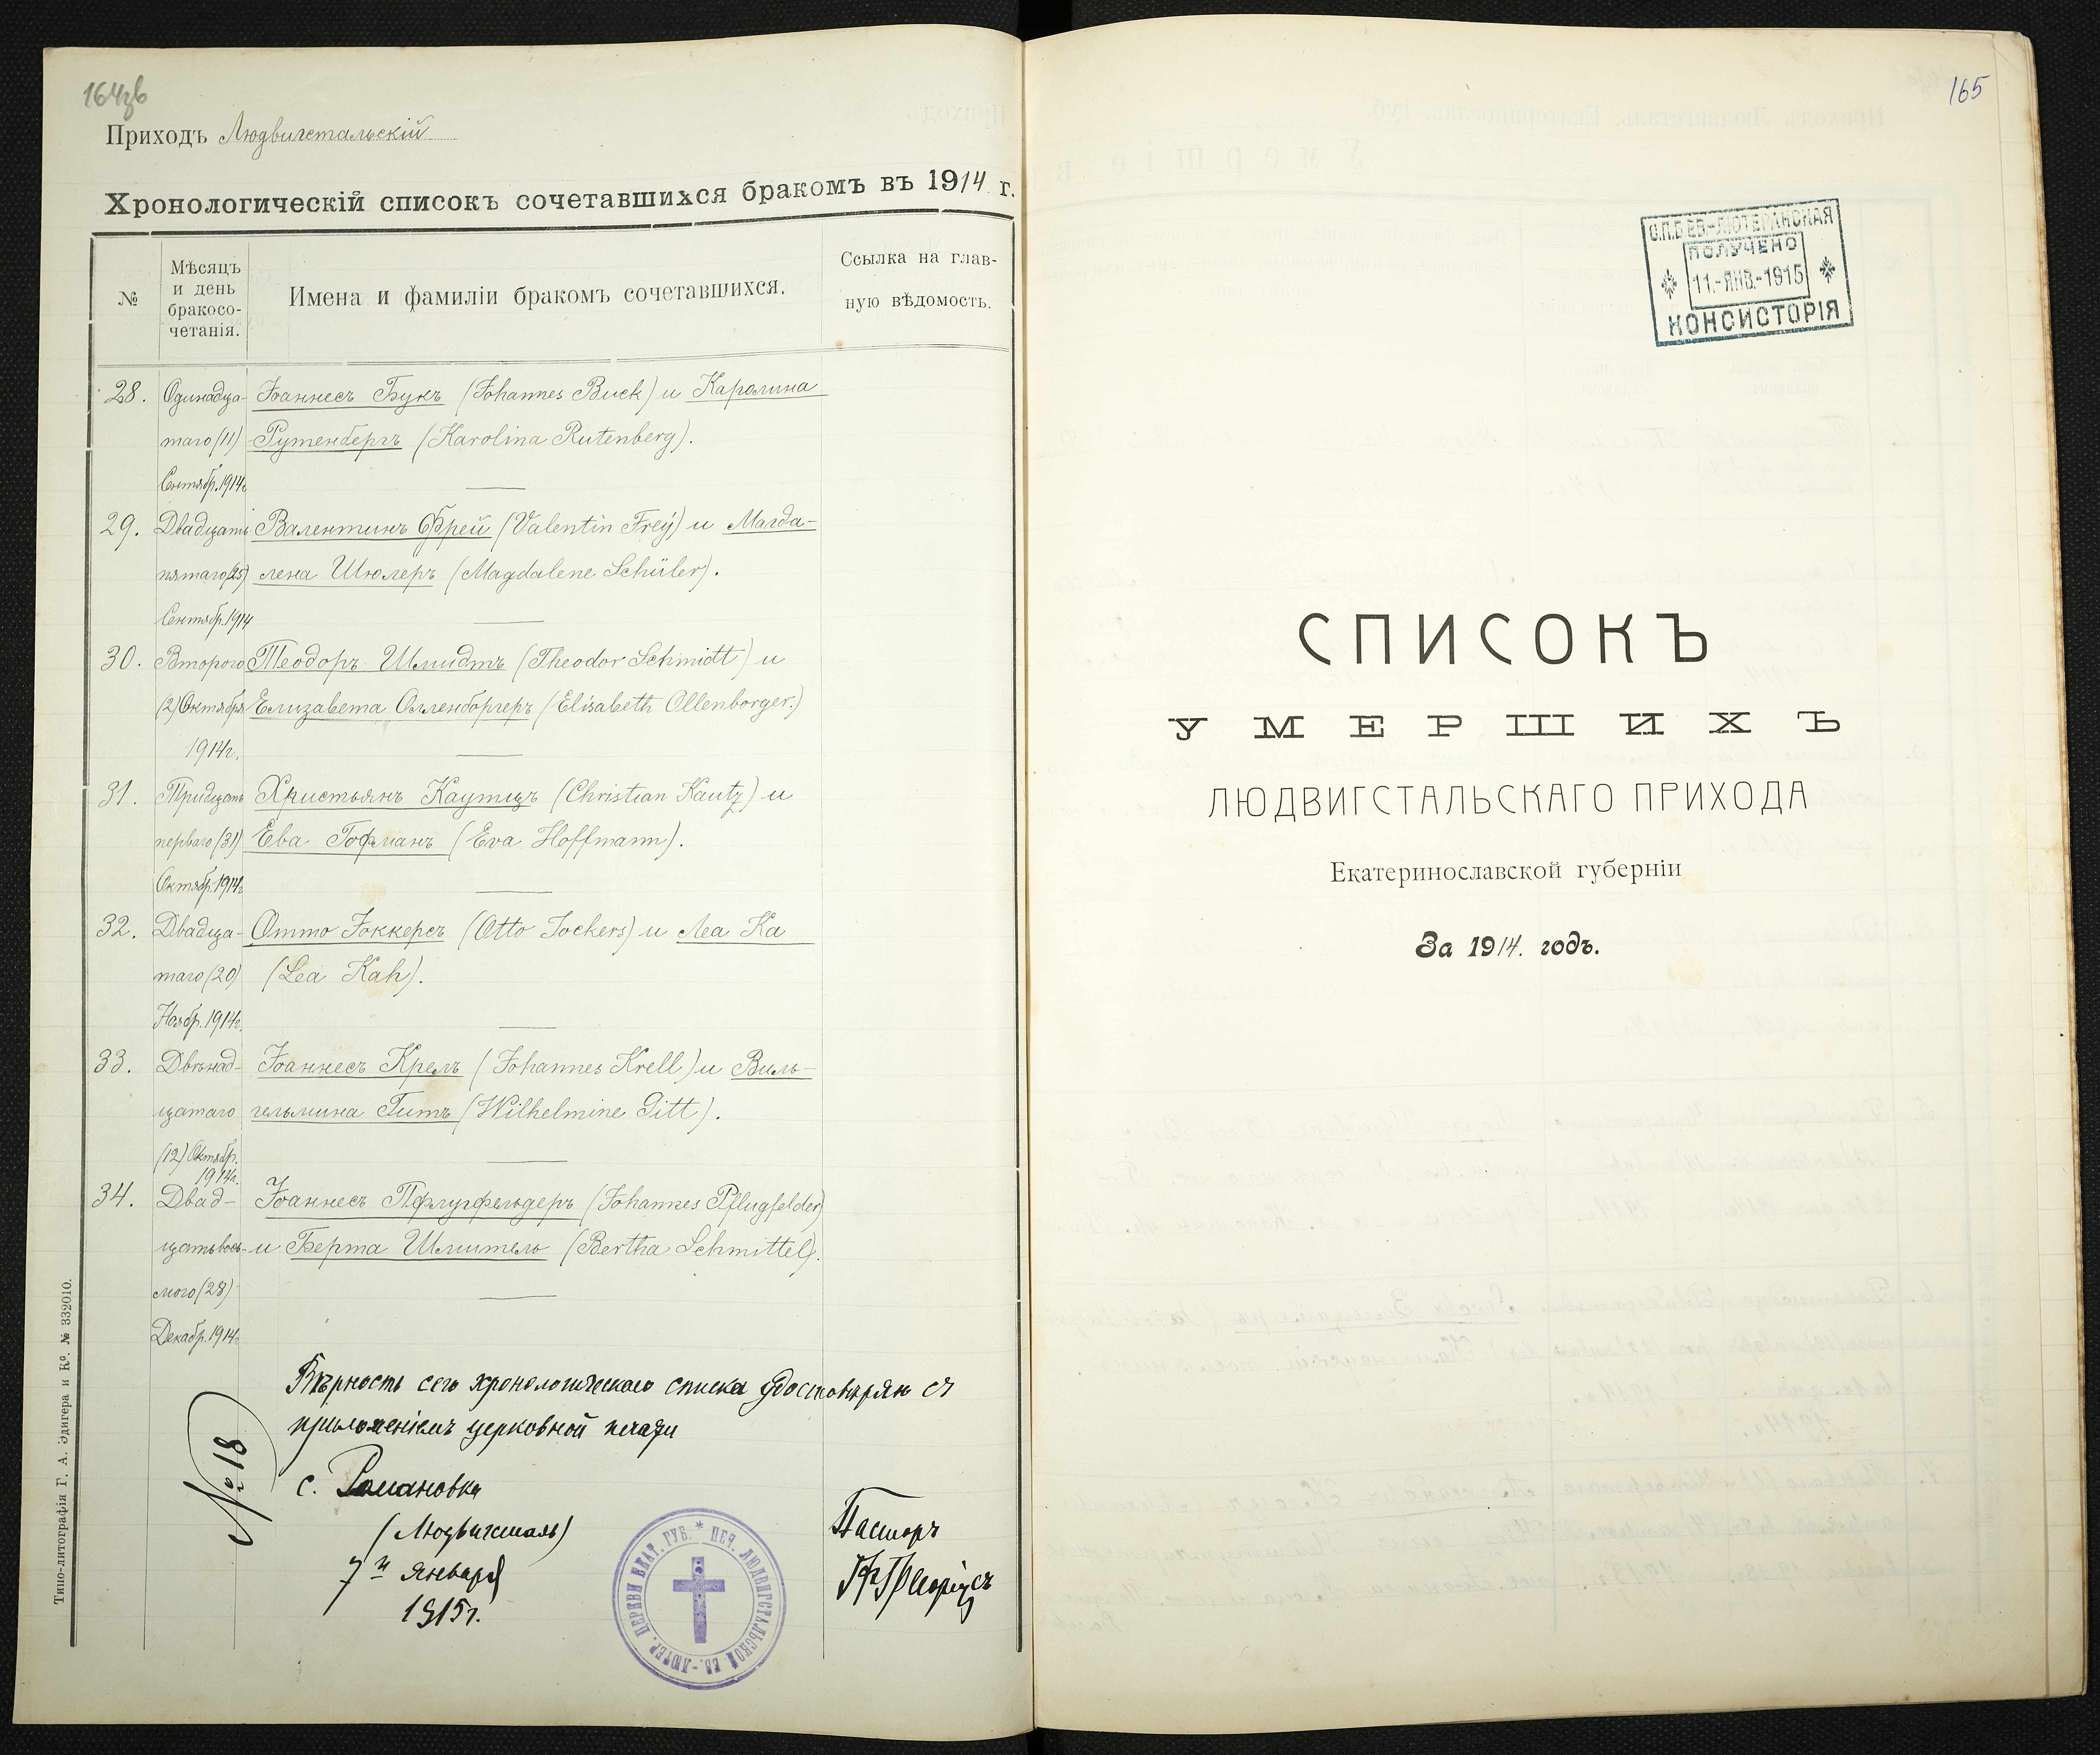 164об
Приходъ Людвигстальскій
Хронологическій списокъ сочетавшихся бракомъ въ 1914 г.
№
Мѣсяцъ
и день
бракосо-
четанія.
Имена и фамиліи бракомъ сочетавшихся.
Ссылка на глав-
ную вѣдомость.
28. Одинадца- Іоаннесъ Букъ (Johannes Buck) и Каролина
таго (11) Рутенбергъ (Karolina Rutenberg).
Сентябр. 1914г.
29. Двадцать Валентинъ Фрей (Valentin Frey) и Магда-
пятаго (25) лена Шюлеръ (Magdalene Schüler).
Сентябр. 1914
30. Второго Теодоръ Шмидтъ (Theodor Schmidt) и
(2) Октября Елизавета Олленборгеръ (Elisabeth Ollenborger.)
1914г.
31. Тридцать Христьянъ Каутцъ (Christian Kautz) и
перваго (31) Ева Гофманъ (Eva Hoffmann).
Октябр. 1914г.
32. Двадца- Отто Іоккерсъ (Otto Jockers) и Леа Ка
таго (20) (Lea Kah).
Ноябр. 1914г.
33. Двѣнад- Іоаннесъ Крель (Johannes Krell) и Виль-
цатаго гельмина Гитъ (Wilhelmine Gitt).
(12) Октябр.
1914г.
34. Двад- Іоаннесъ Пфлугфельдеръ (Johannes Pflugfelder)
цать вось- и Берта Шмитель (Bertha Schmittel).
мого (28)
Декабр. 1914г.
Вѣрность сего хронологическаго списка удостовѣряю съ
приложеніемъ церковной печати
№ 18
с. Романовка
(Людвигсталь)
7го Января
1915г.
Пасторъ
ПЕЧ. ЛЮДВИГСТАЛЬСКОЙ ЕВ.-ЛЮТЕР. ЦЕРКВИ ЕКАТ. ГУБ. *
Типо-литографія Г. А. Эдигера и Ко. № 332010.
165
С.П.Б ЕВ.-ЛЮТЕРАНСКАЯ
ПОЛУЧЕНО
11.-ЯНВ.-1915
КОНСИСТОРІЯ
СПИСОКЪ
УМЕРШИХЪ
ЛЮДВИГСТАЛЬСКАГО ПРИХОДА
Екатеринославской губерніи
За 1914. годъ.